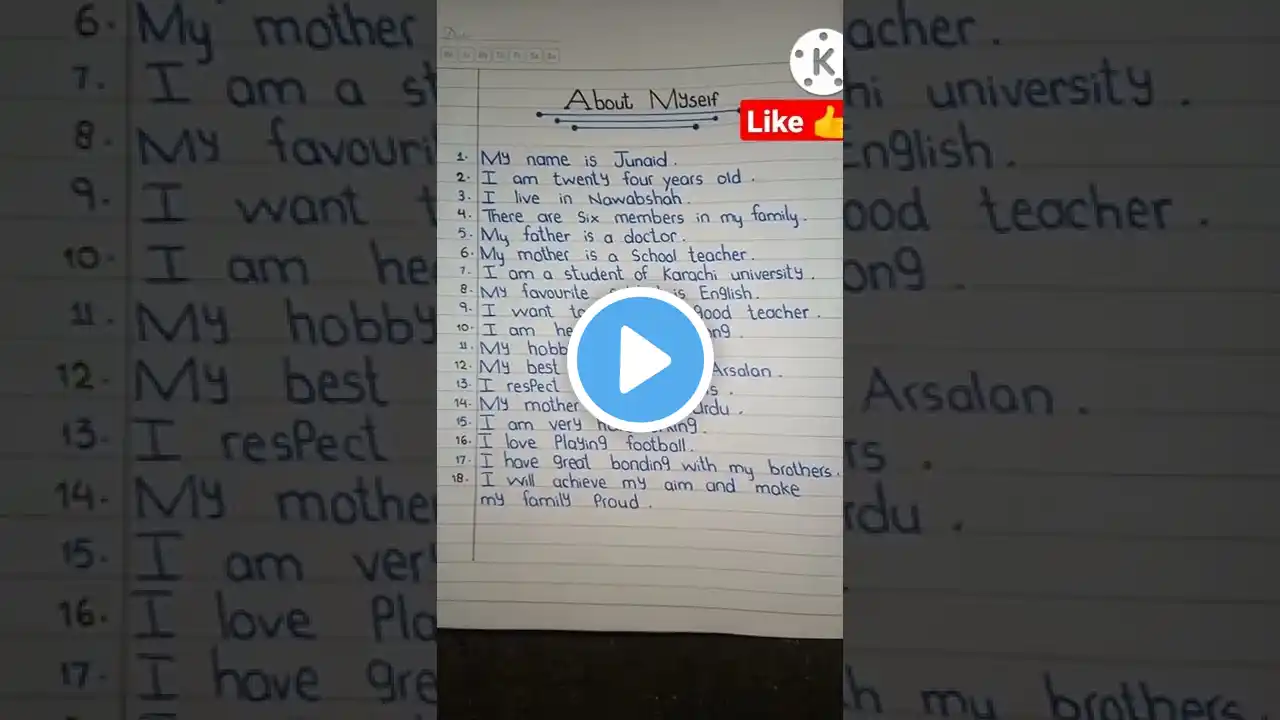 About Myself
K
Like 👍
1. My name is Junaid.
2. I am twenty four years old.
3. I live in Nawabshah.
4. There are Six members in my family.
5. My father is a doctor.
6. My mother is a School teacher.
7. I am a student of Karachi university.
8. My favourite is English.
9. I want to good teacher.
10. I am
11. My hobby
12. My best Arsalan.
13. I respect
14. My mother Urdu.
15. I am very
16. I love Playing football.
17. I have great bonding with my brothers.
18. I will achieve my aim and make
my family Proud.